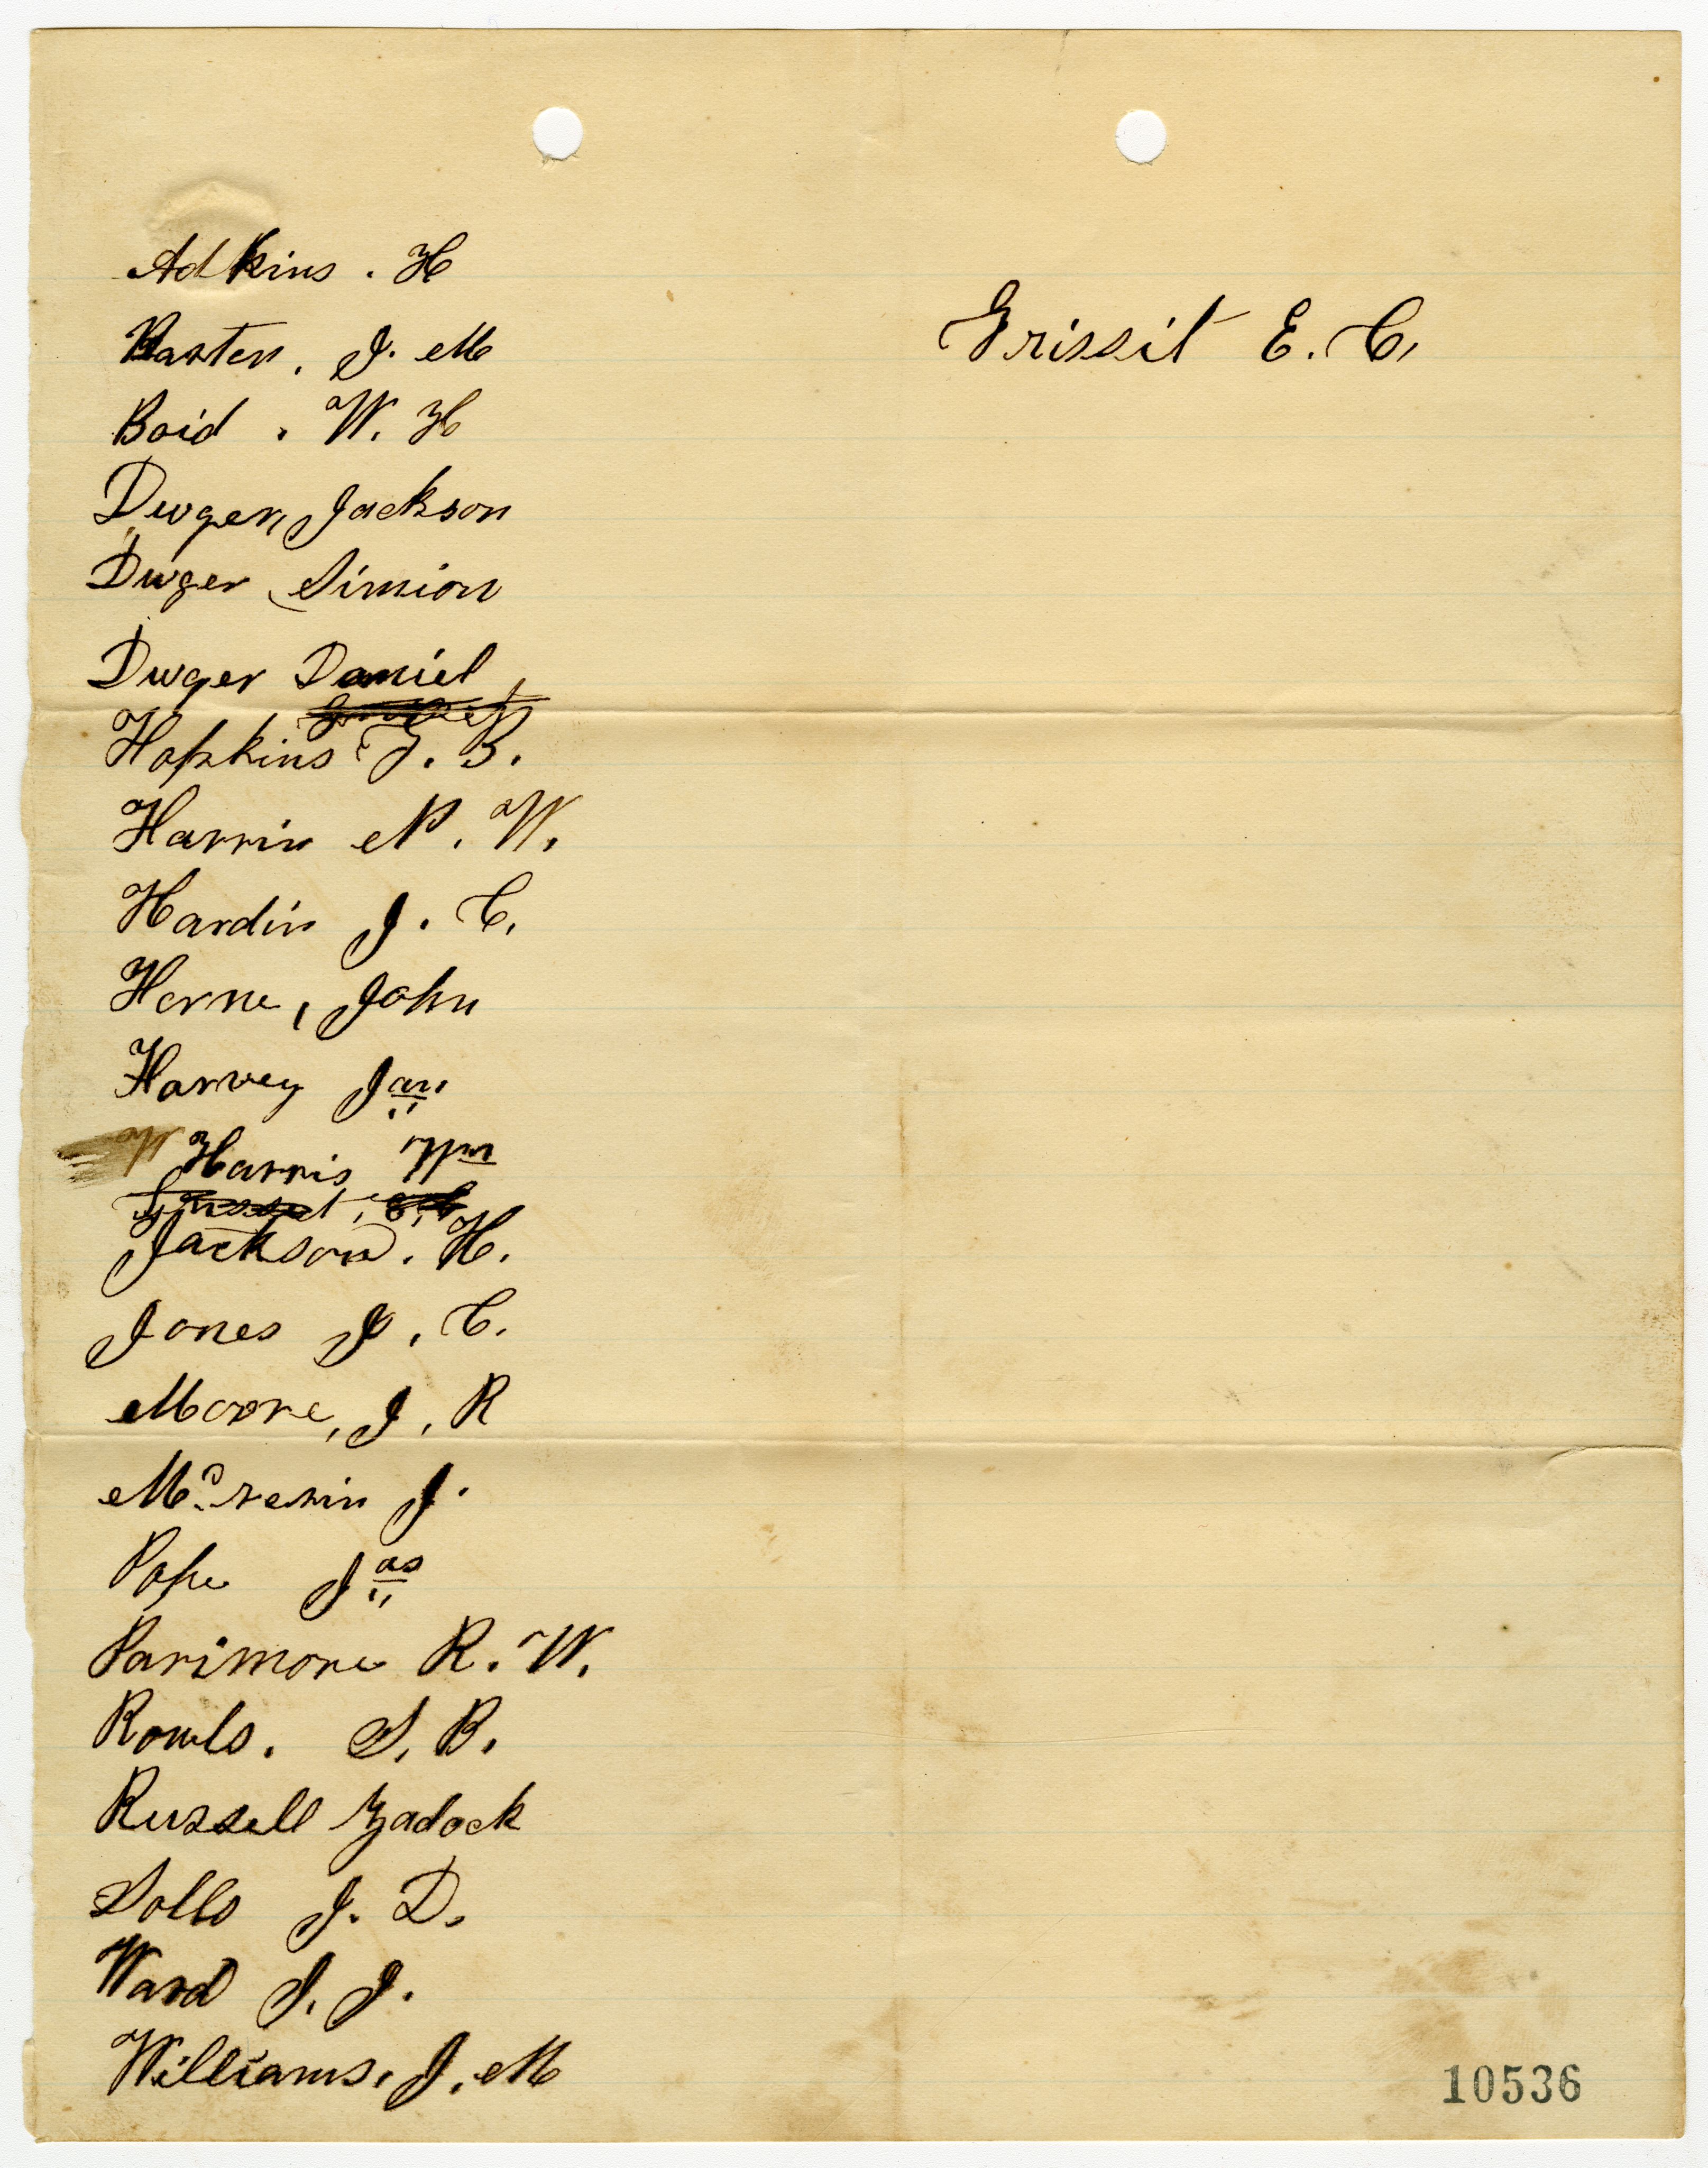 Adkins . H
Baxter, J. M
Boid . W. H
Dwger, Jackson
Dwger Simion
Dwger Daniel
Hopkins J. B.
Harris N. W.
Hardin J. C.
Herne, John
Harvey Jas
W Harris Wm
Grissit, E. C.
Jackson. H.
Jones J. C.
Moore, J. R
J.
Pope Jas
Parimore R. W.
Rowls. S. B.
Russell Zadock
Solls J. D.
Ward J. J.
Williams, J. M
Grissit E. C.
10536